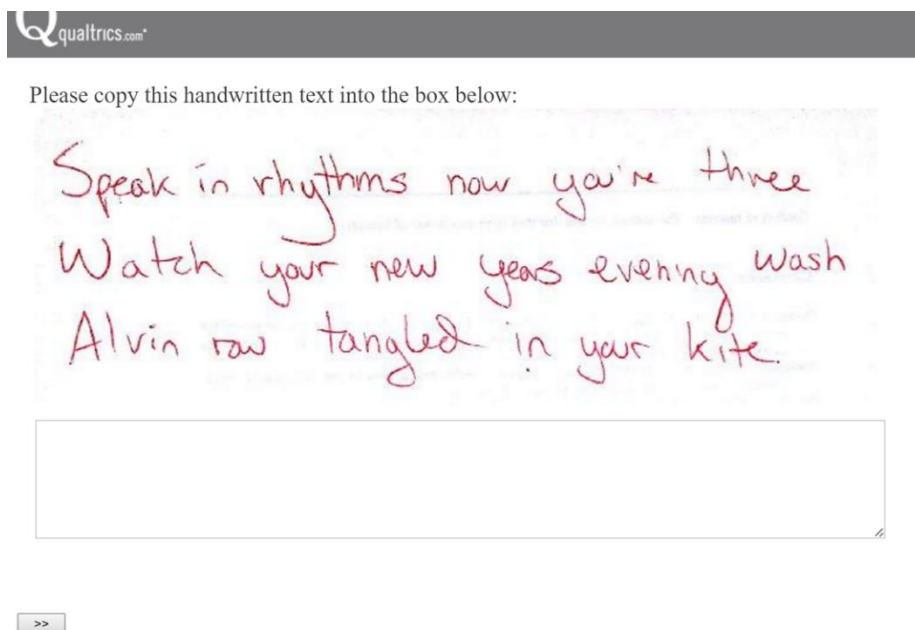 Qualtrics.com
Please copy this handwritten text into the box below:
Speak in rhythms now you're three
Watch your new years evening wash
Alvin row tangled in your kite.
>>